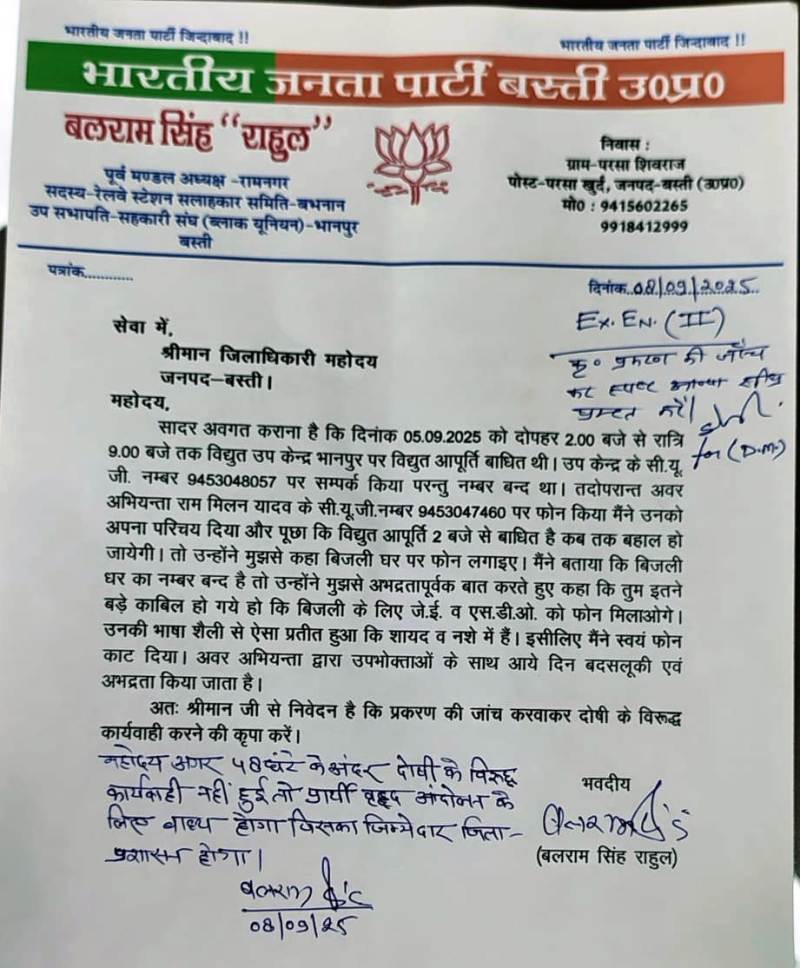 भारतीय जनता पार्टी जिन्दाबाद !!
भारतीय जनता पार्टी जिन्दाबाद !!
भारतीय जनता पार्टी बस्ती उ0प्र0
बलराम सिंह "राहुल"
पूर्व मण्डल अध्यक्ष -रामनगर
सदस्य-रेलवे स्टेशन सलाहकार समिति-बभनान
उप सभापति-सहकारी संघ (ब्लाक यूनियन)-भानपुर
बस्ती
निवास :
ग्राम-परसा शिवराज
पोस्ट-परसा खुर्द, जनपद-बस्ती (उ0प्र0)
मो0 : 9415602265
9918412999
पत्रांक............
दिनांक..08/09/2025..
Ex. EN. (II)
कृ० प्रकरण की जाँच
कर स्पष्ट आख्या शीघ्र
प्रस्तुत करें।
for (D.M.)
सेवा में,
श्रीमान जिलाधिकारी महोदय
जनपद-बस्ती।
महोदय,
सादर अवगत कराना है कि दिनांक 05.09.2025 को दोपहर 2.00 बजे से रात्रि
9.00 बजे तक विद्युत उप केन्द्र भानपुर पर विद्युत आपूर्ति बाधित थी। उप केन्द्र के सी.यू.
जी. नम्बर 9453048057 पर सम्पर्क किया परन्तु नम्बर बन्द था। तदोपरान्त अवर
अभियन्ता राम मिलन यादव के सी.यू.जी.नम्बर 9453047460 पर फोन किया मैंने उनको
अपना परिचय दिया और पूछा कि विद्युत आपूर्ति 2 बजे से बाधित है कब तक बहाल हो
जायेगी। तो उन्होंने मुझसे कहा बिजली घर पर फोन लगाइए। मैंने बताया कि बिजली
घर का नम्बर बन्द है तो उन्होंने मुझसे अभद्रतापूर्वक बात करते हुए कहा कि तुम इतने
बड़े काबिल हो गये हो कि बिजली के लिए जे.ई. व एस.डी.ओ. को फोन मिलाओगे।
उनकी भाषा शैली से ऐसा प्रतीत हुआ कि शायद व नशे में हैं। इसीलिए मैंने स्वयं फोन
काट दिया। अवर अभियन्ता द्वारा उपभोक्ताओं के साथ आये दिन बदसलूकी एवं
अभद्रता किया जाता है।
अतः श्रीमान जी से निवेदन है कि प्रकरण की जांच करवाकर दोषी के विरूद्ध
कार्यवाही करने की कृपा करें।
महोदय अगर 48 घंटे के अंदर दोषी के विरूद्ध
कार्यवाही नहीं हुई तो प्रार्थी वृहद आंदोलन के
लिए बाध्य होगा जिसका जिम्मेदार जिला-
प्रशासन होगा।
भवदीय
(बलराम सिंह राहुल)
बलराम
08/09/25